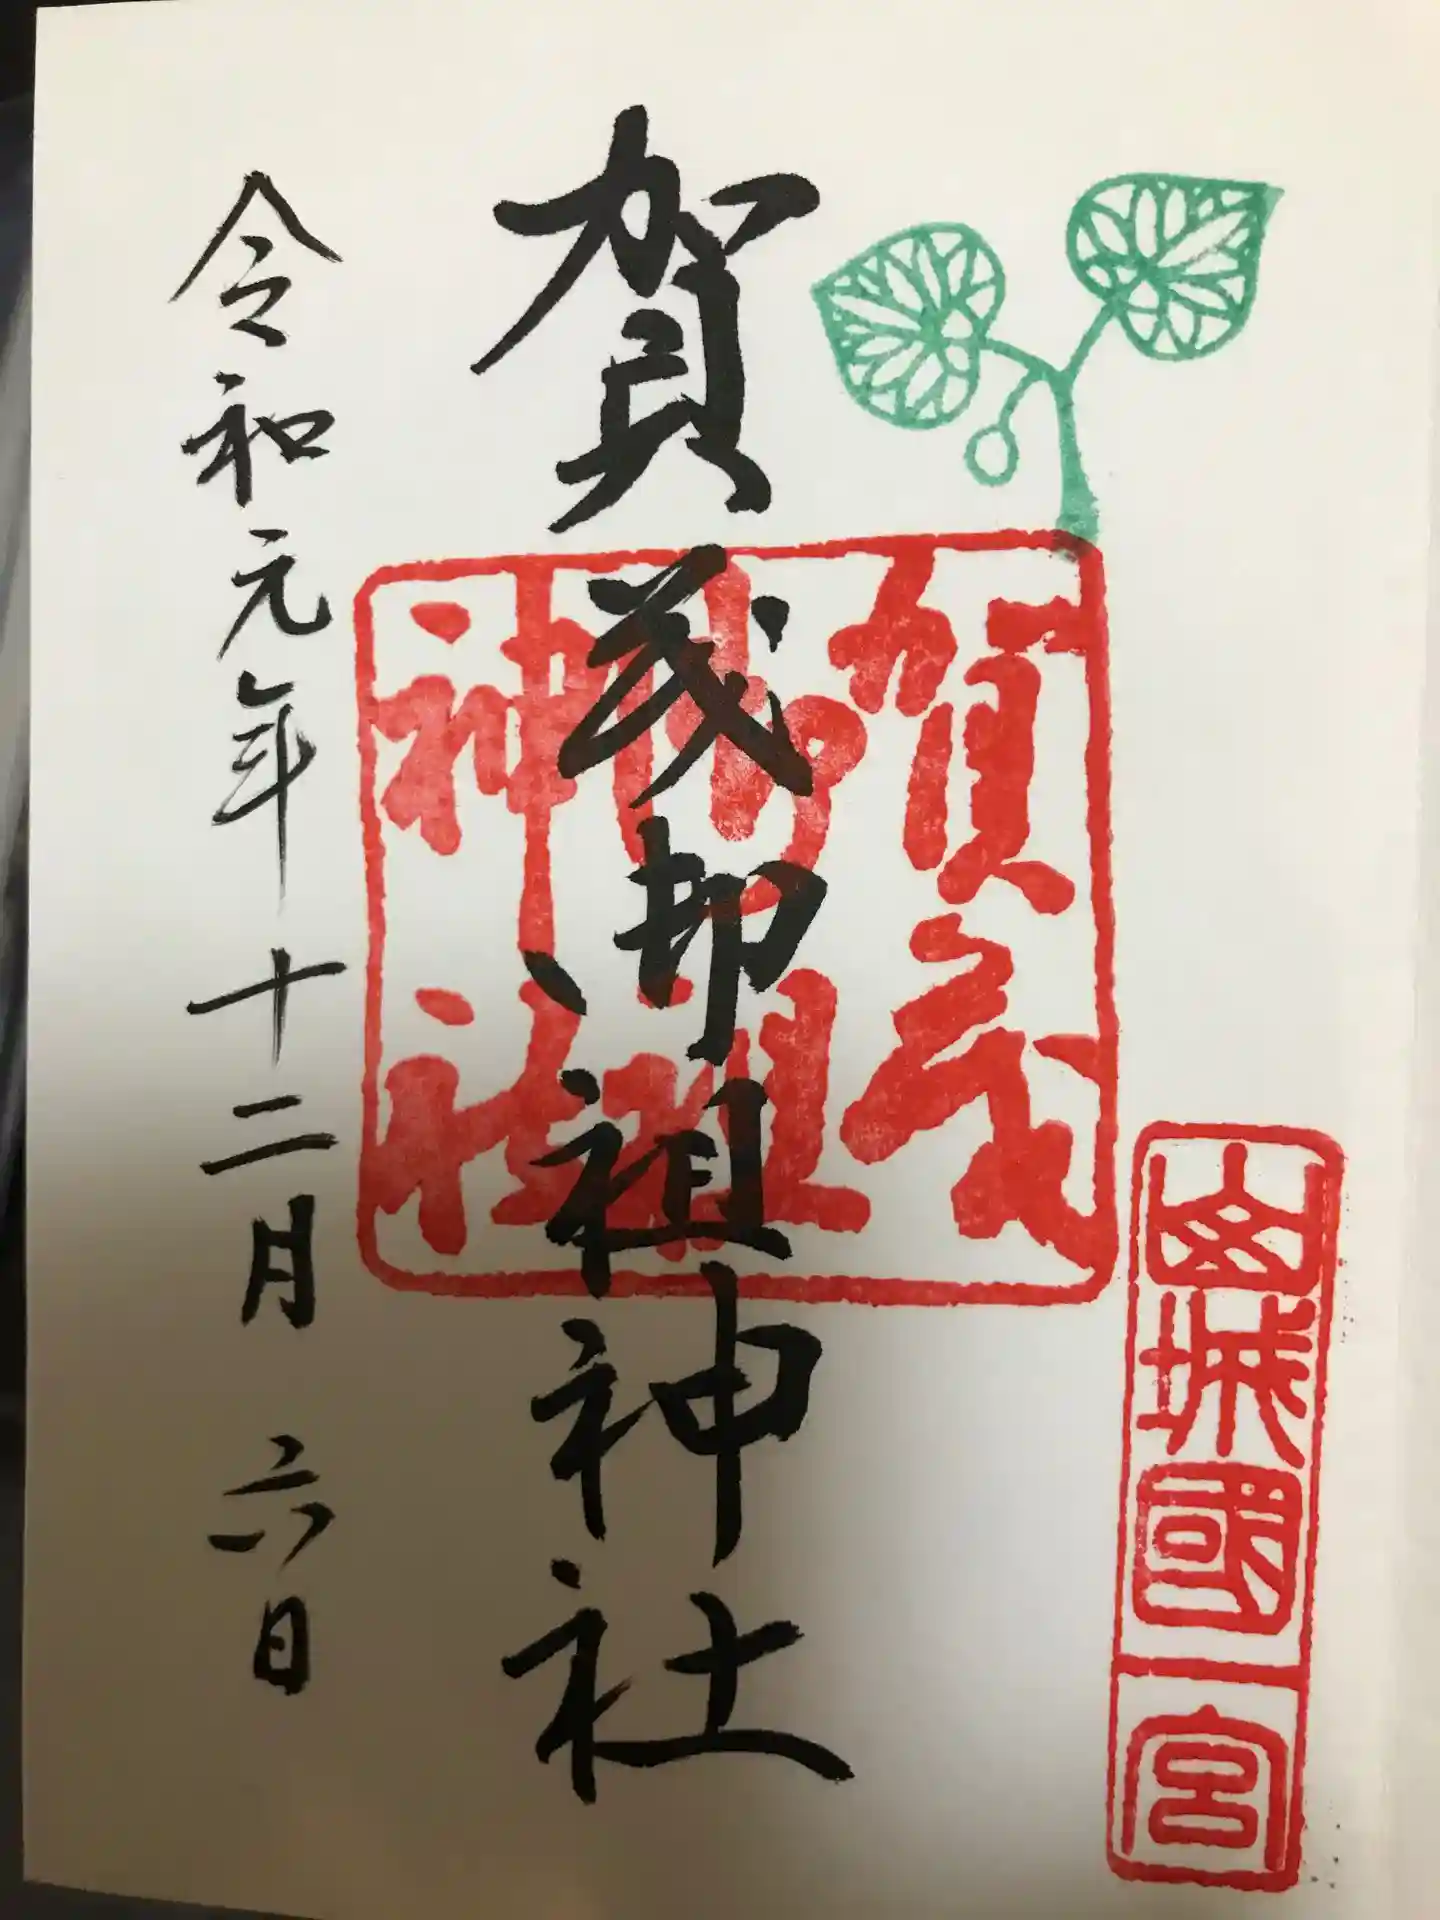 山城國一宮
賀茂御祖神社
賀茂
御祖
神社
令和元年十二月六日